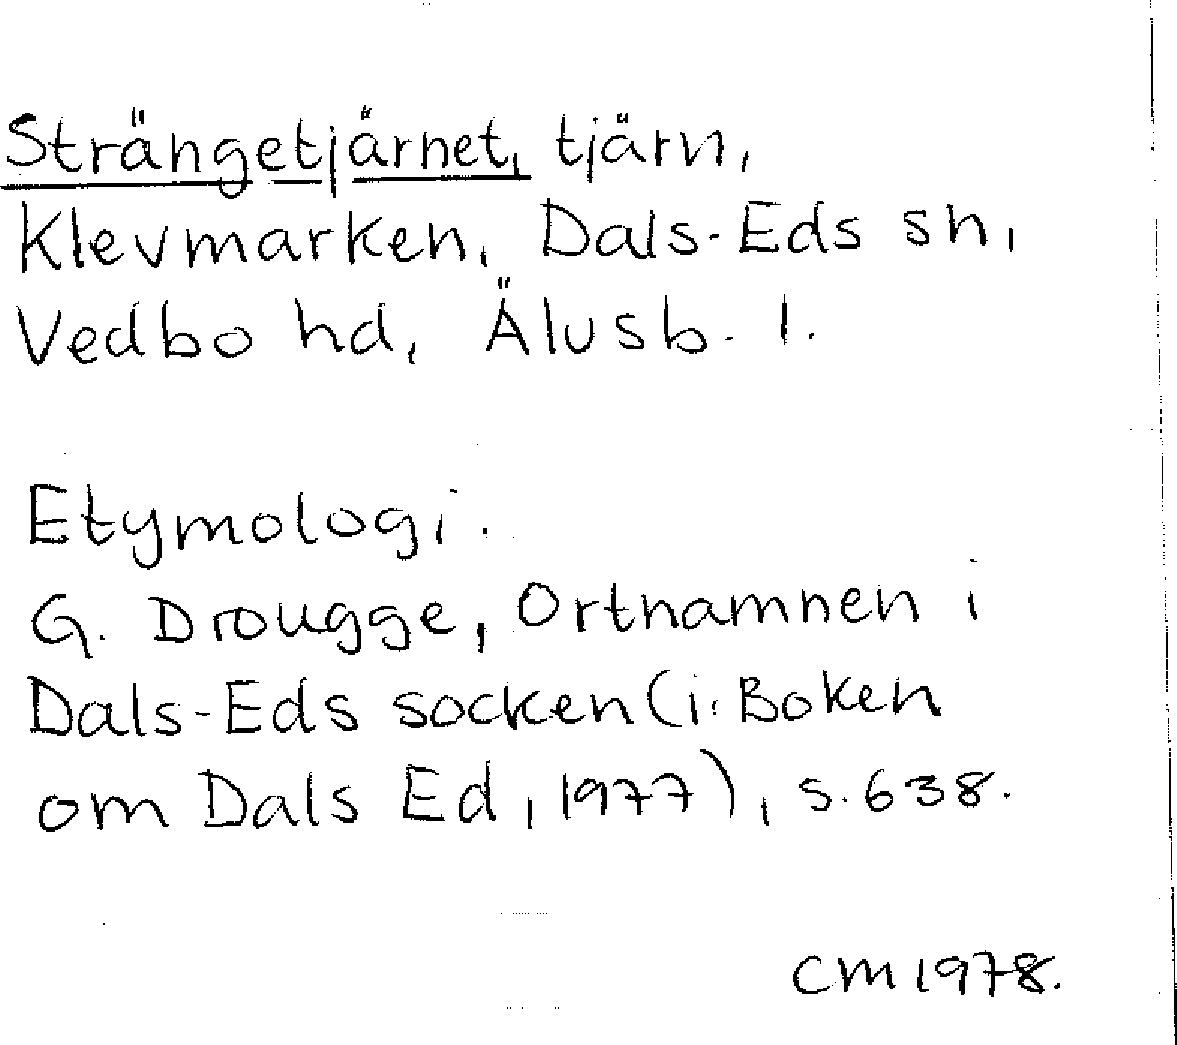 Strängetjärnet, tjärn,
Klevmarken, Dals-Eds sn,
Vedbo hd, Älvsb. l.
Etymologi.
G. Drougge, Ortnamnen i
Dals-Eds socken (i: Boken
om Dals Ed, 1977), s. 638.
CM 1978.